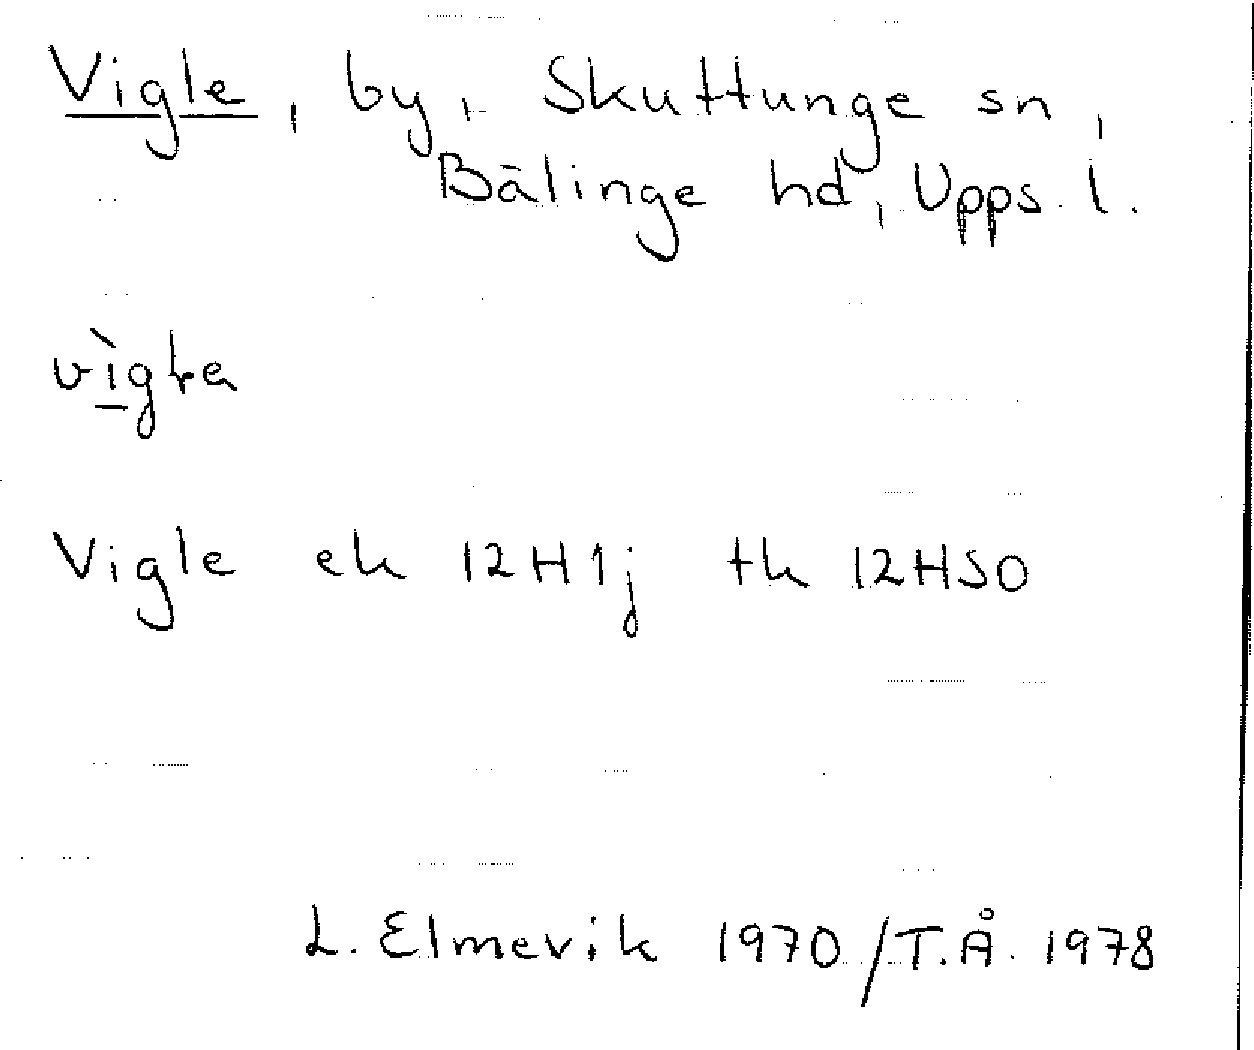 Vigle, by, Skuttunge sn,
Bälinge hd, Upps. l.
Vigle ek 12H1j tk 12HSO
L. Elmevik 1970/T.Å. 1978